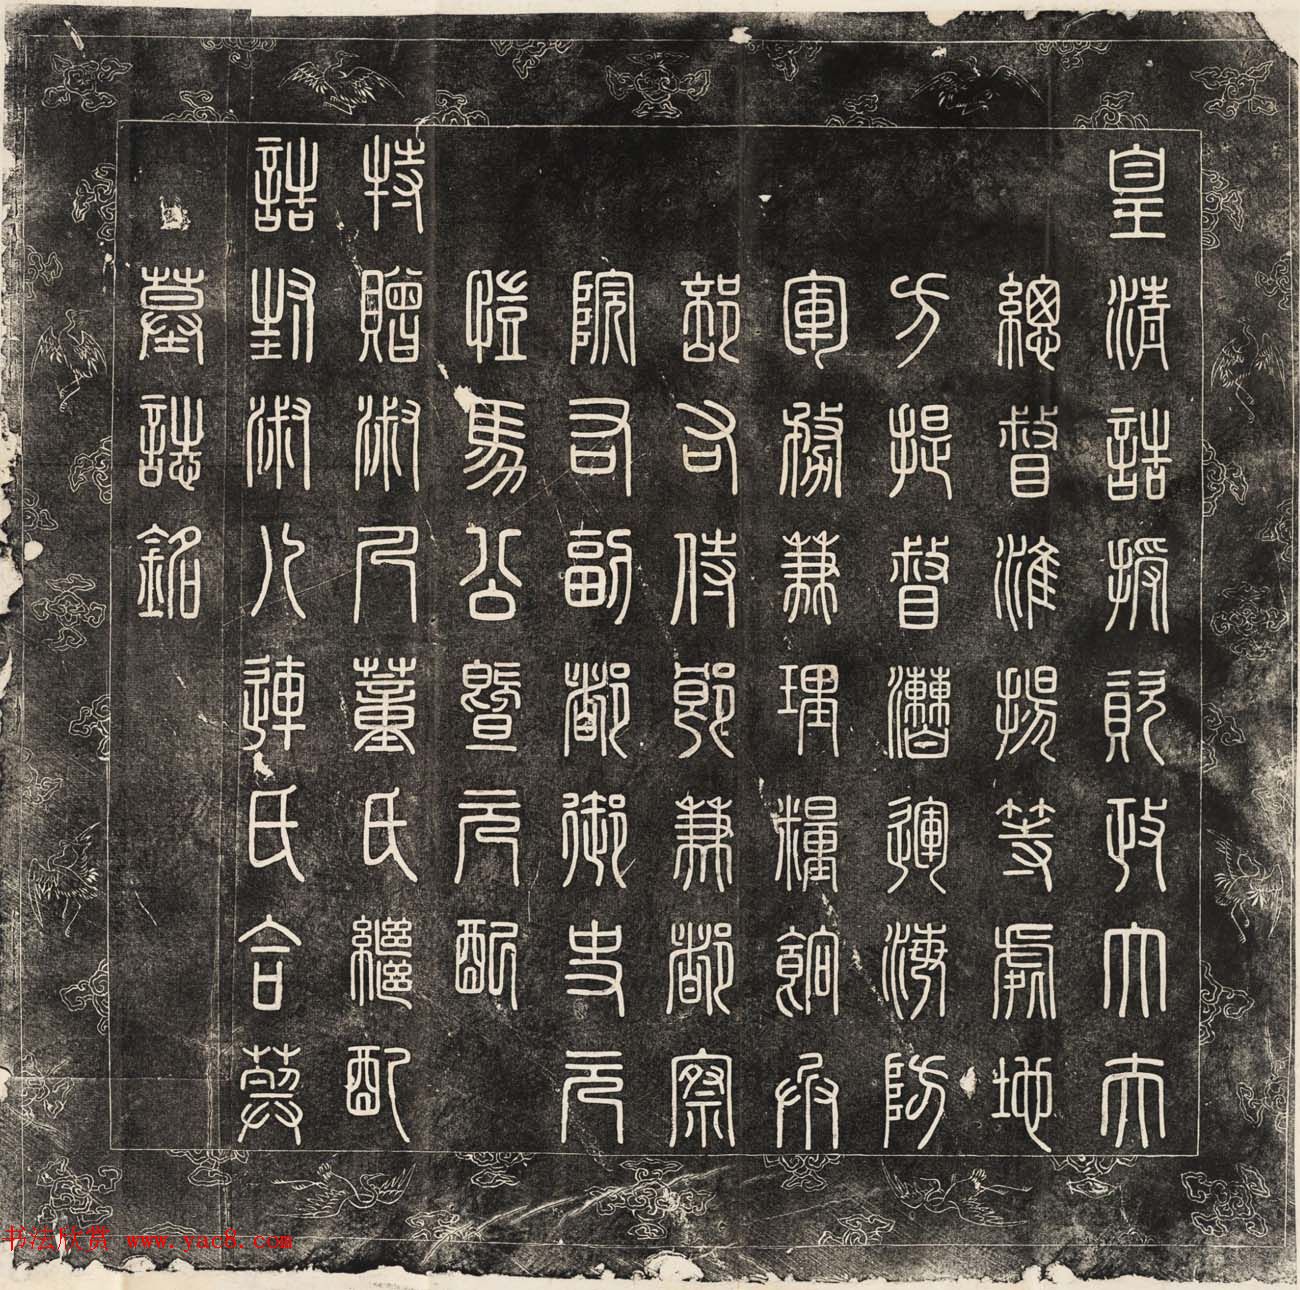 皇清誥授資政大夫
總督淮揚等處地
方提督漕運海防
軍務兼理糧餉兵
部右侍郎兼都察
院右副都御史元
愷馬公暨元配
特贈淑人董氏繼配
誥封淑人連氏合葬
墓誌銘
书法欣赏 www.yac8.com